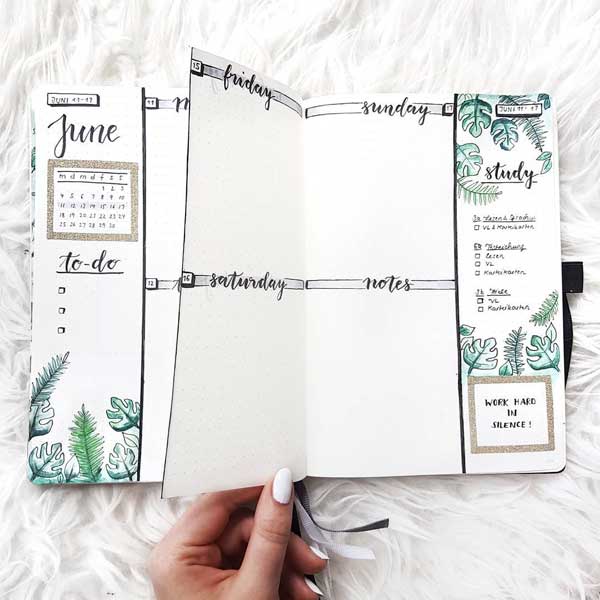 JUNI 11-17
June
m d m d f s s
1 2 3
4 5 6 7 8 9 10
11 12 13 14 15 16 17
18 19 20 21 22 23 24
25 26 27 28 29 30
to-do
11 m
12
15 friday
16 saturday
sunday 17
notes
JUNI 11-17
study
VL & Karteikarten
lesen
VL
Karteikarten
VL
Karteikarten
WORK HARD
IN
SILENCE!